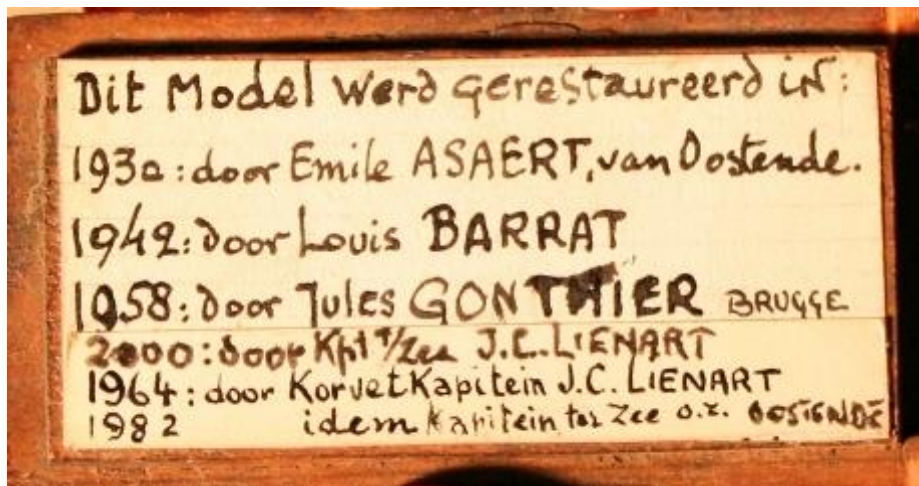 Dit Model werd gerestaureerd in:
1930: door Emile ASAERT, van Oostende.
1942: door Louis BARRAT
1958: door Jules GONTHIER BRUGGE
2000: door Kpt t/zee J.C. LIENART
1964: door KorvetKapitein J.C. LIENART
1982 idem Kapitein ter Zee o.r. OOSTENDE